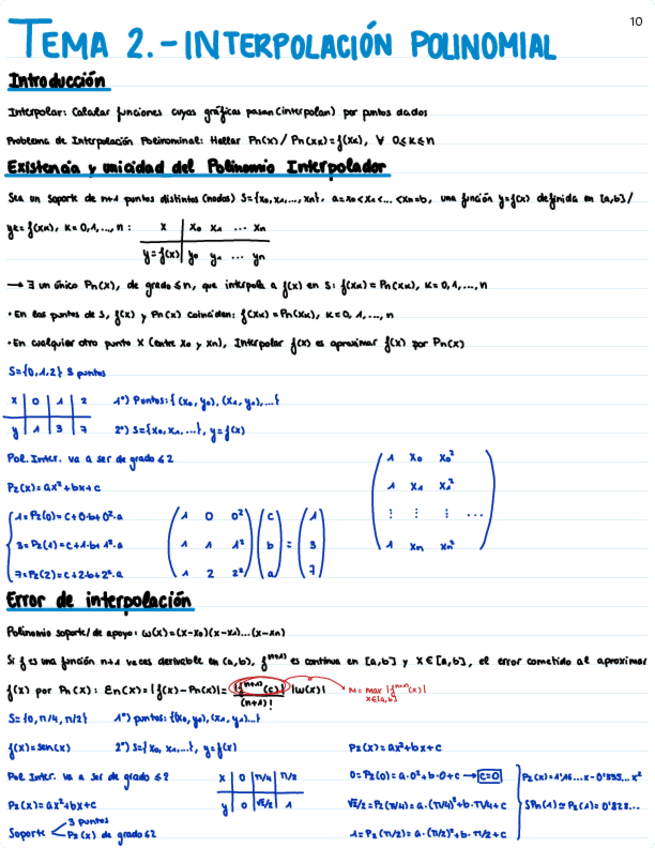 10
TEMA 2.- INTERPOLACIÓN POLINOMIAL
Introducción
Interpolar: Calcular funciones cuyas gráficas pasan (interpolan) por puntos dados
Problema de Interpolación Polinominal: Hallar Pn(x) / Pn(xk)=f(xk), ∀ 0≤k≤n
Existencia y unicidad del Polinomio Interpolador
Sea un soporte de n+1 puntos distintos (nodos) S={x₀,x₁,...,xn}, a=x₀<x₁<...<xn=b, una función y=f(x) definida en [a,b] /
yk=f(xk), k=0,1,...,n:
x | x₀ x₁ ... xn
y=f(x) | y₀ y₁ ... yn
→ ∃ un único Pn(x), de grado ≤n, que interpola a f(x) en S: f(xk)=Pn(xk), k=0,1,...,n
· En los puntos de S, f(x) y Pn(x) coinciden: f(xk)=Pn(xk), k=0,1,...,n
· En cualquier otro punto x (entre x₀ y xn), Interpolar f(x) es aproximar f(x) por Pn(x)
S={0,1,2} 3 puntos
x | 0 | 1 | 2
y | 1 | 3 | 7
1º) Puntos: {(x₀,y₀),(x₁,y₁),...}
2º) S={x₀,x₁,...}, y=f(x)
Pol. Inter. va a ser de grado ≤2
P₂(x)=ax²+bx+c
1 x₀ x₀²
1 x₁ x₁²
⋮ ⋮ ⋮ ...
1 xn xn²
1=P₂(0)=c+0·b+0²·a
3=P₂(1)=c+1·b+1²·a
7=P₂(2)=c+2·b+2²·a
(1 0 0²) (c) (1)
(1 1 1²) (b) = (3)
(1 2 2²) (a) (7)
Error de interpolación
Polinomio soporte/de apoyo: ω(x)=(x-x₀)(x-x₁)...(x-xn)
Si f es una función n+1 veces derivable en (a,b), f⁽ⁿ⁺¹⁾ es continua en [a,b] y x∈[a,b], el error cometido al aproximar
f(x) por Pn(x): En(x)=|f(x)-Pn(x)|= |f⁽ⁿ⁺¹⁾(c)|/(n+1)! |ω(x)| M= max |f⁽ⁿ⁺¹⁾(x)|
x∈[a,b]
S={0,π/4,π/2} 1º) puntos: {(x₀,y₀),(x₁,y₁)...}
f(x)=sen(x) 2º) S={x₀,x₁,...}, y=f(x)
Pol. Inter. va a ser de grado ≤2
P₂(x)=ax²+bx+c
Soporte < 3 puntos
P₂(x) de grado ≤2
x | 0 | π/4 | π/2
y | 0 | √2/2 | 1
P₂(x)=ax²+bx+c
0=P₂(0)=a·0²+b·0+c → c=0
√2/2=P₂(π/4)=a·(π/4)²+b·π/4+c
1=P₂(π/2)=a·(π/2)²+b·π/2+c
P₂(x)=1'16...x-0'335...x²